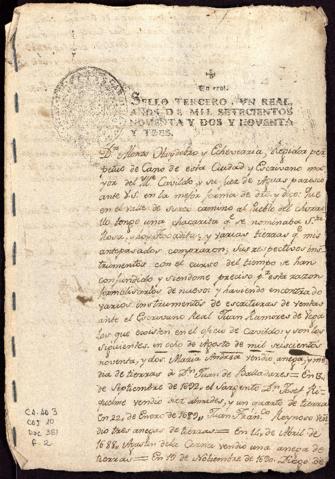 Un real.
SELLO TERCERO, VN REAL,
AÑOS DE MIL SETECIENTOS
NOVENTA Y DOS Y NOVENTA
Y TRES.
Dn. Maria y Echeverria, Regidor per
petuo de Cano de esta Ciudad y Escrivano ma
yor del Cavildo, y su Juez de Aguas paresco
ante VS. en la mejor forma de dro. y digo: Que
en el valle de Surco camino al Pueblo del
tengo una chacarita q.e se nominaba Sta.
Rosa, y varias tierras q.e mis
antepasados compraron, sus respectivos ins
trumentos con el curso del tiempo se han
confundido y siendome preciso p.r esta razon
formalisarlos de nuevo; y haviendo encontrado
varios instrumentos de escrituras de ventas
ante el Escrivano Real Juan Ramires de
los que existen en el oficio de Cavildo y son los
siguientes. en ocho de Agosto de mil seiscientos
noventa, y dos, Maria Andrea vendio anega, y me
dia de tierras a Dn. Juan de Balladares = En 13
de Septiembre de 1692, el Sargento Dn. Josef
vendió diez almudes, y un quarto de tierras
En 22, de Enero de 1689, Juan Fran.co Reynoso ven
dió tres anegas de tierras = En 14, de Abril de
1688, Agustin de la Cerna vendió una anega de
tierras = En 10 de Noviembre de 1690. de
CA-GO 3
CAJ 10
DOC 351
f. 2